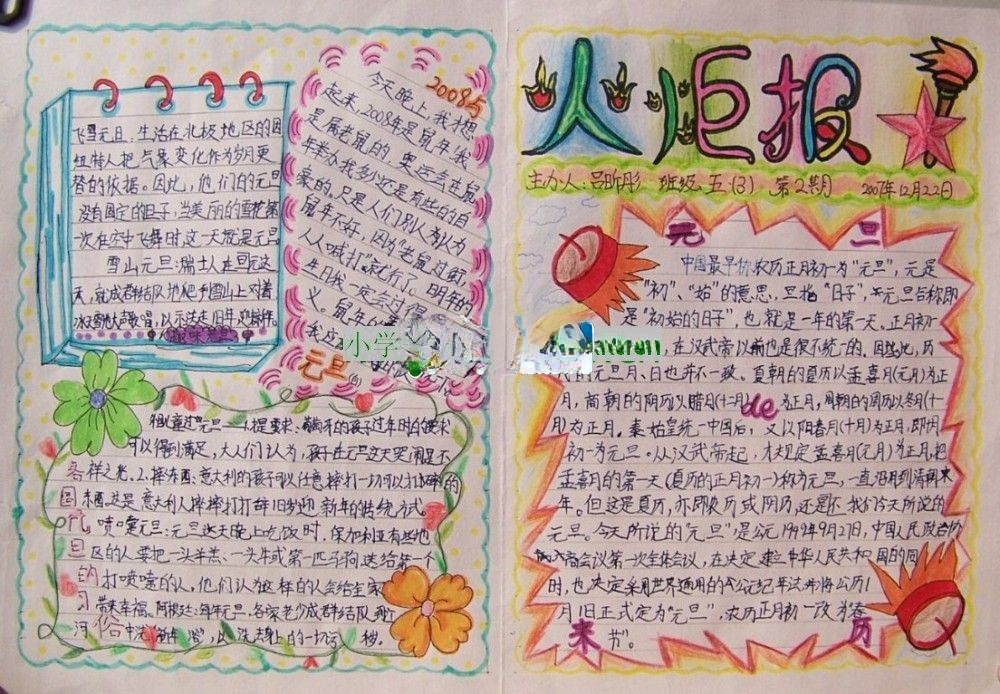 火炬报
主办人:吕昕彤 班级 五(3) 第2期 2007年12月22日
元旦
中国最早称农历正月初一为“元旦”,元是
“初”、“始”的意思,旦指“日子”,元旦合称即
是“初始的日子”,也就是一年的第一天。正月初一
,在汉武帝以前也是很不统一的。因此,历
的元旦月、日也并不一致。夏朝的夏历以孟喜月(元月)为正
月,商朝的阴历以腊月(十二月)为正月,周朝的周历以冬月(十一
月)为正月。秦始皇统一中国后,又以阳春月(十月)为正月,即因
初一为元旦。从汉武帝起,才规定孟喜月(元月)为正月,把
孟喜月的第一天(夏历的正月初一)称为元旦,一直沿用到清朝末
年。但这是夏历,亦即农历或阴历,还是不我们今天所说的
元旦。今天所说的“元旦”是公元1949年9月27日,中国人民政治协
商会议第一次全体会议,在决定建立中华人民共和国的同
时,也决定采用世界通用的公元纪年法,并将公历1
月1日正式定为“元旦”,农历正月初一改为“春
节”。
de
来历
飞雪元旦:生活在北极地区的因
纽特人把气象变化作为岁月更
替的依据。因此,他们的元旦
没有固定的日子,当美丽的雪花第
一次在空中飞舞时,这一天就是元旦
雪山元旦:瑞士人在元旦这
天,就成群结队地爬到雪山上对着
冰天雪地大声歌唱,以示
2008与
今天晚上,我才想
起来,2008年是鼠年!我
是属老鼠的,奥运会在鼠
年举办我多少还是有些的自
豪的,只是人们别人为认为
鼠年不好,因为“老鼠过街,
人人喊打”就行了。明年的
生日我一定会过得
义。鼠年的
我应
元旦
小学
过“元旦”——以提要求:葡萄牙的孩子过年时的要求
可以得到满足,大人们认为,孩子在元旦这天哭闹是不
祥之兆。2.摔东西:意大利的孩子可以任意摔打一切可以打碎的
东西,这是意大利人摔摔打打辞旧岁迎新年的传统方式。
喷嚏元旦:元旦这天晚上吃饭时,保加利亚有些地
区的人要把一头羊羔、一头牛或第一匹马驹送给第一个
打喷嚏的人,他们认为这样的人会给全家
带来幸福。阿根廷:每年元旦,各家老少成群结队到江
河中洗“新年浴”,以洗去身上的一切污秽。
各国元旦的习俗